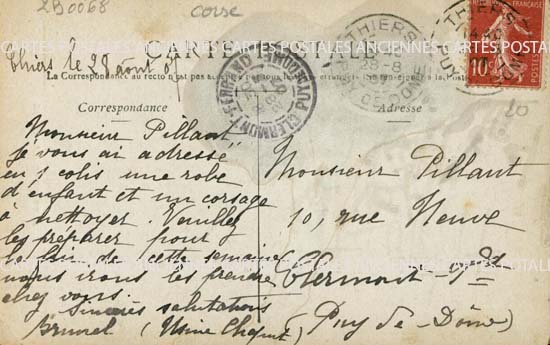 2B0068
corse
CARTE POSTALE
Thiers le 28 août 07
La Correspondance au recto n'est pas acceptée par tous les pays étrangers
Correspondance
Monsieur Pillant
Je vous ai adressé
en 1 colis une robe
d'enfant et un corsage
à nettoyer. Veuillez
les préparer pour
la fin de cette semaine
nous irons les prendre
chez vous.
Sincères salutations
Brunel (Usine
Adresse
Monsieur Pillant
10, rue Neuve
Clermont-Fd
(Puy-de-Dôme)
THIERS
28-8
PUY-DE-DOME
CLERMONT-FERRAND
PUY-DE-DOME
THIERS
10
20
CARTES POSTALES ANCIENNES